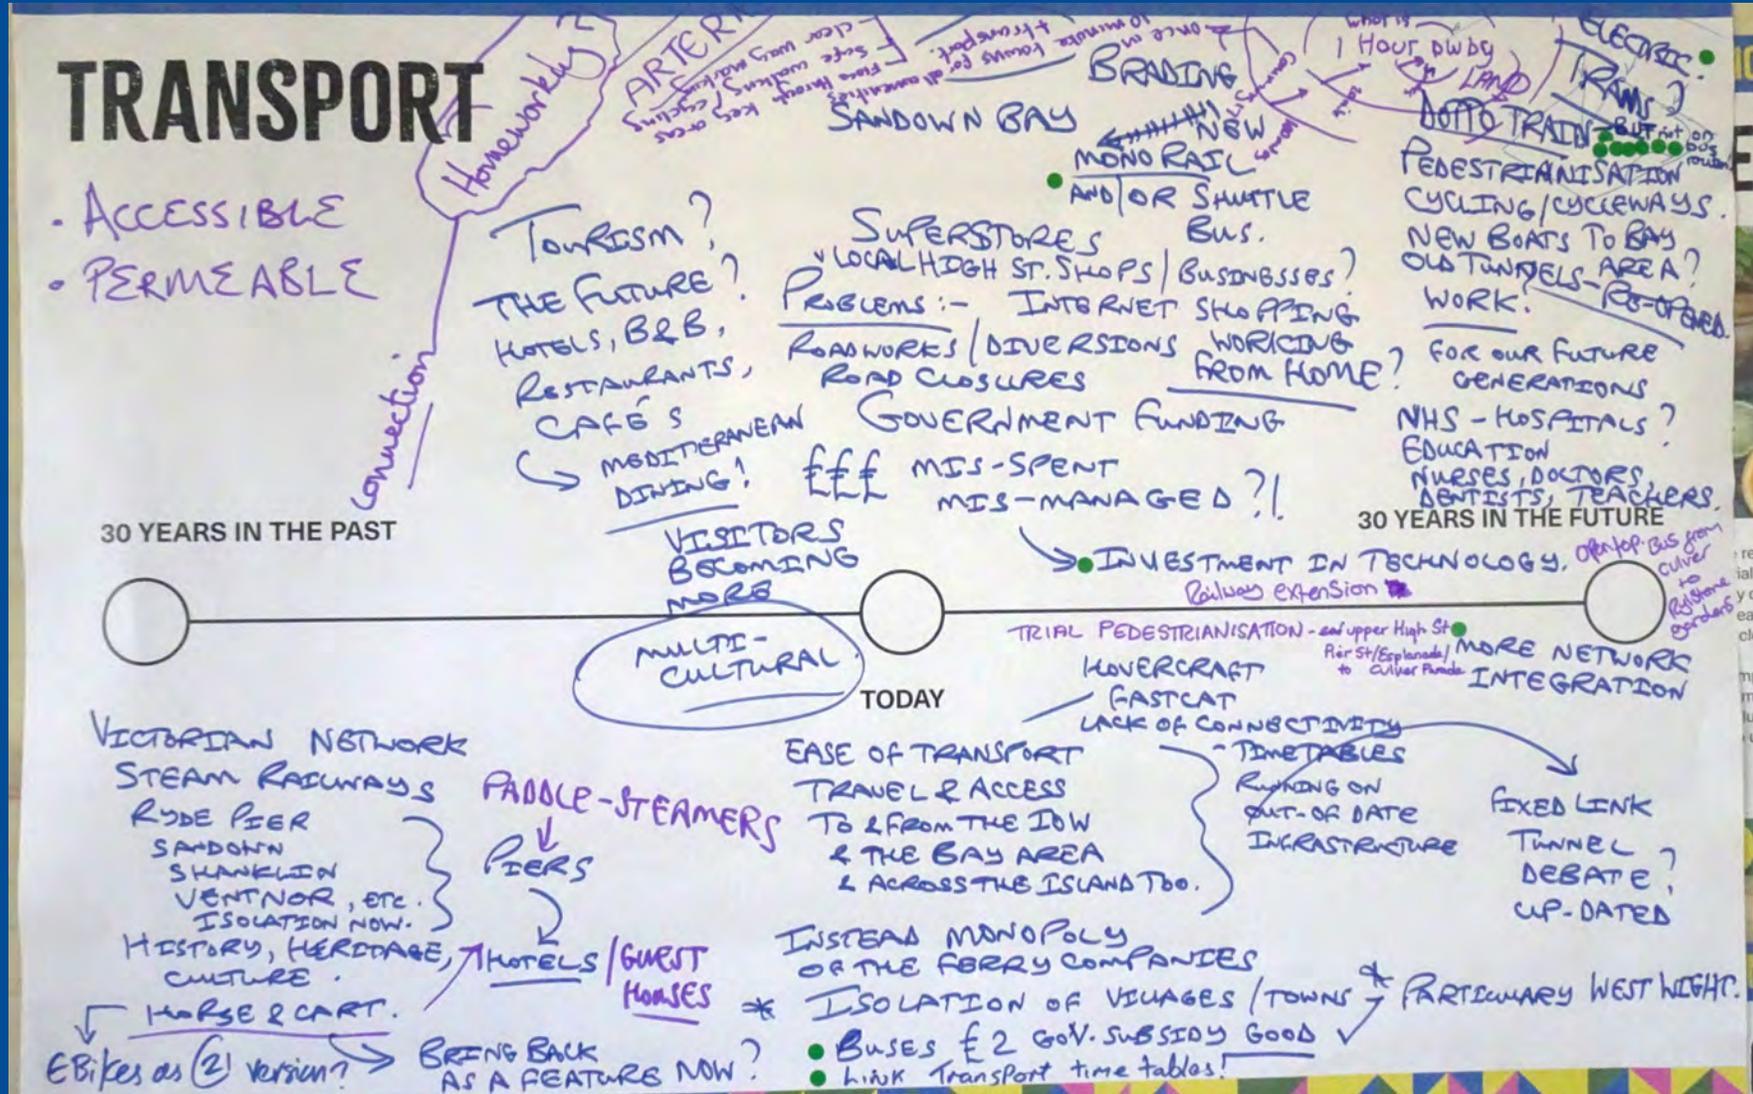 TRANSPORT
• ACCESSIBLE
• PERMEABLE
Homeworkday?
connection
clear way markers
safe walking/cycling
Flow through key areas
10 minute towns for all amenities
+ transport.
once in
BRADING
SANDOWN BAY
NEW
MONORAIL
AND/OR SHUTTLE
BUS.
what is
1 Hour away
LAND
ELECTRIC.
TRAMS?
DOTTO TRAIN - BUT not on
bus
routes
PEDESTRIANISATION
CYCLING/CYCLEWAYS.
NEW BOATS TO BAY
AREA?
OLD TUNNELS - RE-OPENED.
WORK:
FOR OUR FUTURE
GENERATIONS
NHS - HOSPITALS?
EDUCATION
NURSES, DOCTORS,
DENTISTS, TEACHERS.
TOURISM?
THE FUTURE?
HOTELS, B&B,
RESTAURANTS,
CAFÉS
MEDITERANEAN
DINING!
VISITORS
BECOMING
MORE
MULTI-
CULTURAL.
SUPERSTORES
v LOCAL HIGH ST. SHOPS/BUSINESSES?
PROBLEMS:- INTERNET SHOPPING
ROADWORKS/DIVERSIONS WORKING
ROAD CLOSURES FROM HOME?
GOVERNMENT FUNDING
£££ MIS-SPENT
MIS-MANAGED?!
• INVESTMENT IN TECHNOLOGY.
Railway extension
30 YEARS IN THE PAST
TODAY
30 YEARS IN THE FUTURE
Open top. Bus from
Culver
to
Rylstone
gardens
TRIAL PEDESTRIANISATION - upper High St
Pier St/Esplanade/
to Culver Parade
MORE NETWORK
INTEGRATION
HOVERCRAFT
FASTCAT
LACK OF CONNECTIVITY
- TIMETABLES
RUNNING ON
OUT-OF DATE
INFRASTRUCTURE
FIXED LINK
TUNNEL
DEBATE?
UP-DATED
VICTORIAN NETWORK
STEAM RAILWAYS
RYDE PIER
SANDOWN
SHANKLIN
VENTNOR, ETC.
ISOLATION NOW.
HISTORY, HERITAGE,
CULTURE.
HORSE & CART.
EBikes as (2) version?
BRING BACK
AS A FEATURE NOW?
PADDLE-STEAMERS
PIERS
HOTELS/GUEST
HOUSES
EASE OF TRANSPORT
TRAVEL & ACCESS
TO & FROM THE IOW
& THE BAY AREA
& ACROSS THE ISLAND TOO.
INSTEAD MONOPOLY
OF THE FERRY COMPANIES
* ISOLATION OF VILLAGES/TOWNS * PARTICULARY WEST WIGHT.
• BUSES £2 GOV. SUBSIDY GOOD ✓
• Link Transport time tables!